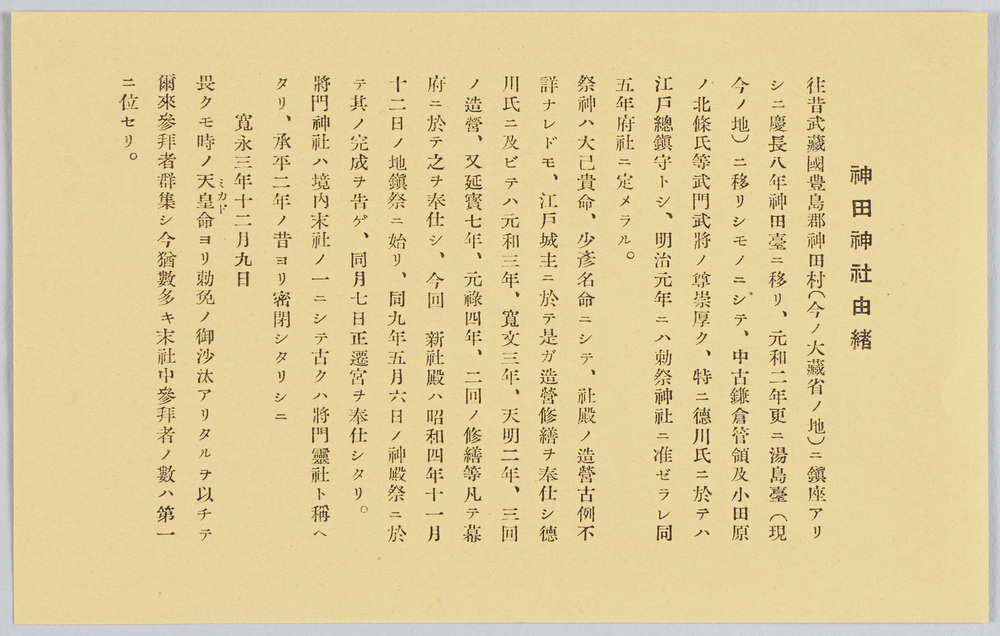 神田神社由緒
往昔武藏國豊島郡神田村(今ノ大藏省ノ地)ニ鎮座アリ
シニ慶長八年神田臺ニ移リ、元和二年更ニ湯島臺(現
今ノ地)ニ移リシモノニシテ、中古鎌倉管領及小田原
ノ北條氏等武門武將ノ尊崇厚ク、特ニ德川氏ニ於テハ
江戸總鎮守トシ、明治元年ニハ勅祭神社ニ准ゼラレ同
五年府社ニ定メラル。
祭神ハ大己貴命、少彦名命ニシテ、社殿ノ造營古例不
詳ナレドモ、江戸城主ニ於テ是ガ造營修繕ヲ奉仕シ德
川氏ニ及ビテハ元和三年、寛文三年、天明二年、三回
ノ造營、又延寳七年、元祿四年、二回ノ修繕等凡テ幕
府ニ於テ之ヲ奉仕シ、今回 新社殿ハ昭和四年十一月
十二日ノ地鎮祭ニ始リ、同九年五月六日ノ神殿祭ニ於
テ其ノ完成ヲ告ゲ、同月七日正遷宮ヲ奉仕シタリ。
將門神社ハ境內末社ノ一ニシテ古クハ將門靈社ト稱ヘ
タリ、承平二年ノ昔ヨリ密閉シタリシニ
寛永三年十二月九日
畏クモ時ノ天皇命ヨリ勅免ノ御沙汰アリタルヲ以チテ
ミカド
爾來參拜者群集シ今猶數多キ末社中參拜者ノ數ハ第一
ニ位セリ。